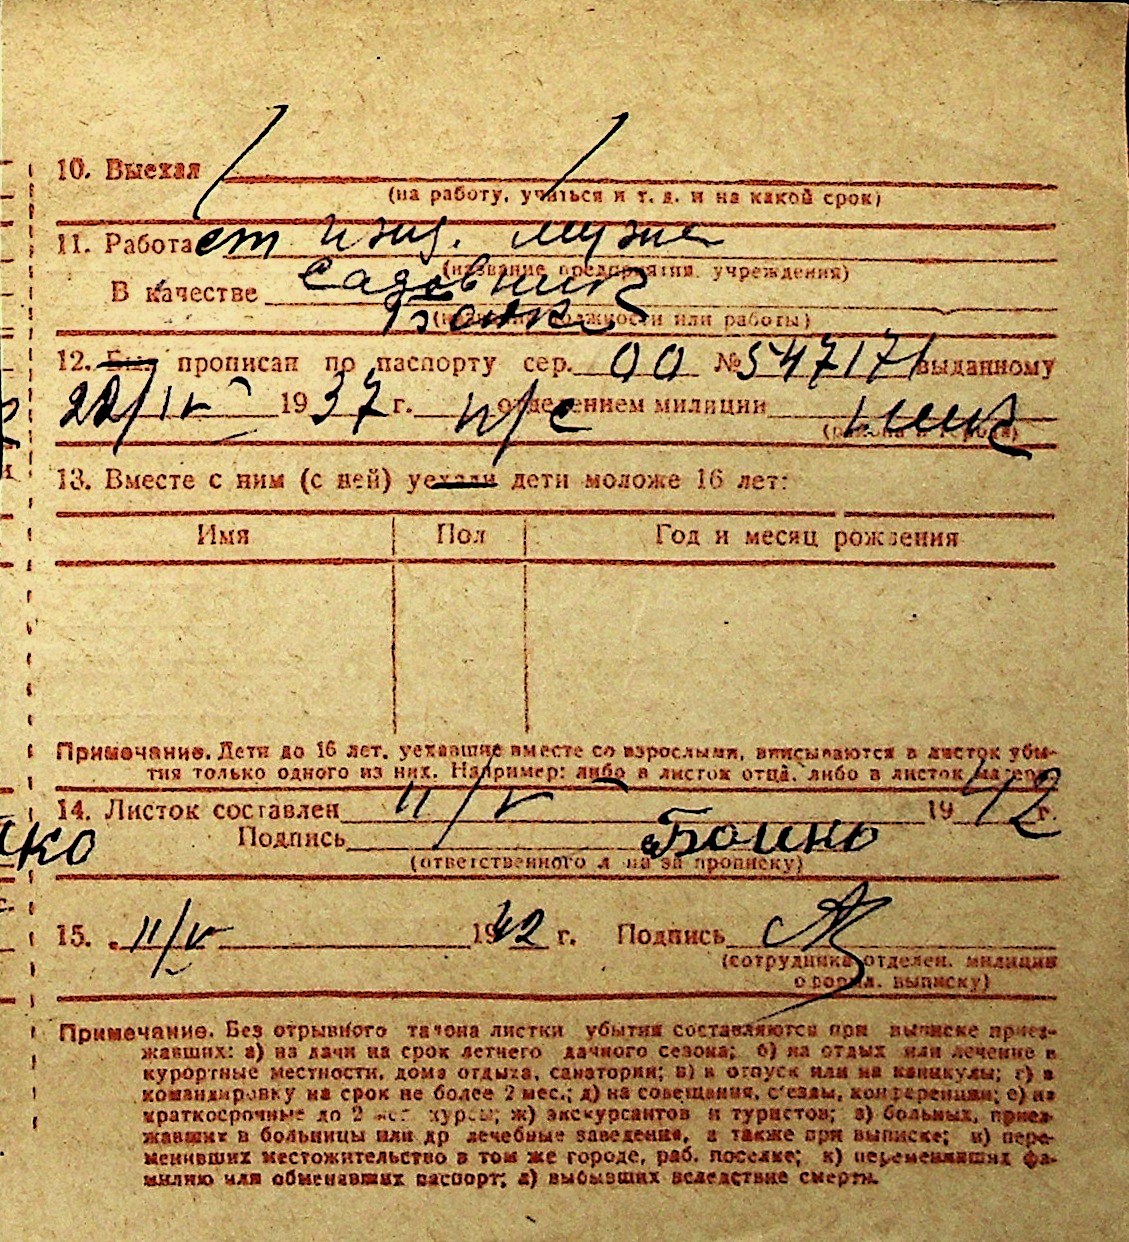 10. Выехал
(на работу, учиться и т. д. и на какой срок)
11. Работает ижд. мужа
(название предприятия, учреждения)
В качестве садовник
(название должности или работы)
12. Был прописан по паспорту сер. 00 № 547171 выданному
22/IV 1937 г. н/с отделением милиции
13. Вместе с ним (с ней) уехали дети моложе 16 лет:
Имя Пол Год и месяц рождения
Примечание. Дети до 16 лет, уехавшие вместе со взрослыми, вписываются в листок убы-
тия только одного из них. Например: либо в листок отца, либо в листок матери.
14. Листок составлен 11/V 1942 г.
ко Подпись Бойко
(ответственного л на за прописку)
15. 11/V 1942 г. Подпись
(сотрудника отделен. милиции
оформл. выписку)
Примечание. Без отрывного талона листки убытия составляются при выписке приез-
жавших: а) на дачи на срок летнего дачного сезона; б) на отдых или лечение в
курортные местности, дома отдыха, санатории; в) в отпуск или на каникулы; г) в
командировку на срок не более 2 мес.; д) на совещания, с'езды, конференции; е) на
краткосрочные до 2 мес курсы; ж) экскурсантов и туристов; з) больных, приез-
жавших в больницы или др лечебные заведения, а также при выписке; и) пере-
менивших местожительство в том же городе, раб. поселке; к) переменивших фа-
милию или обменявших паспорт; л) выбывших вследствие смерти.